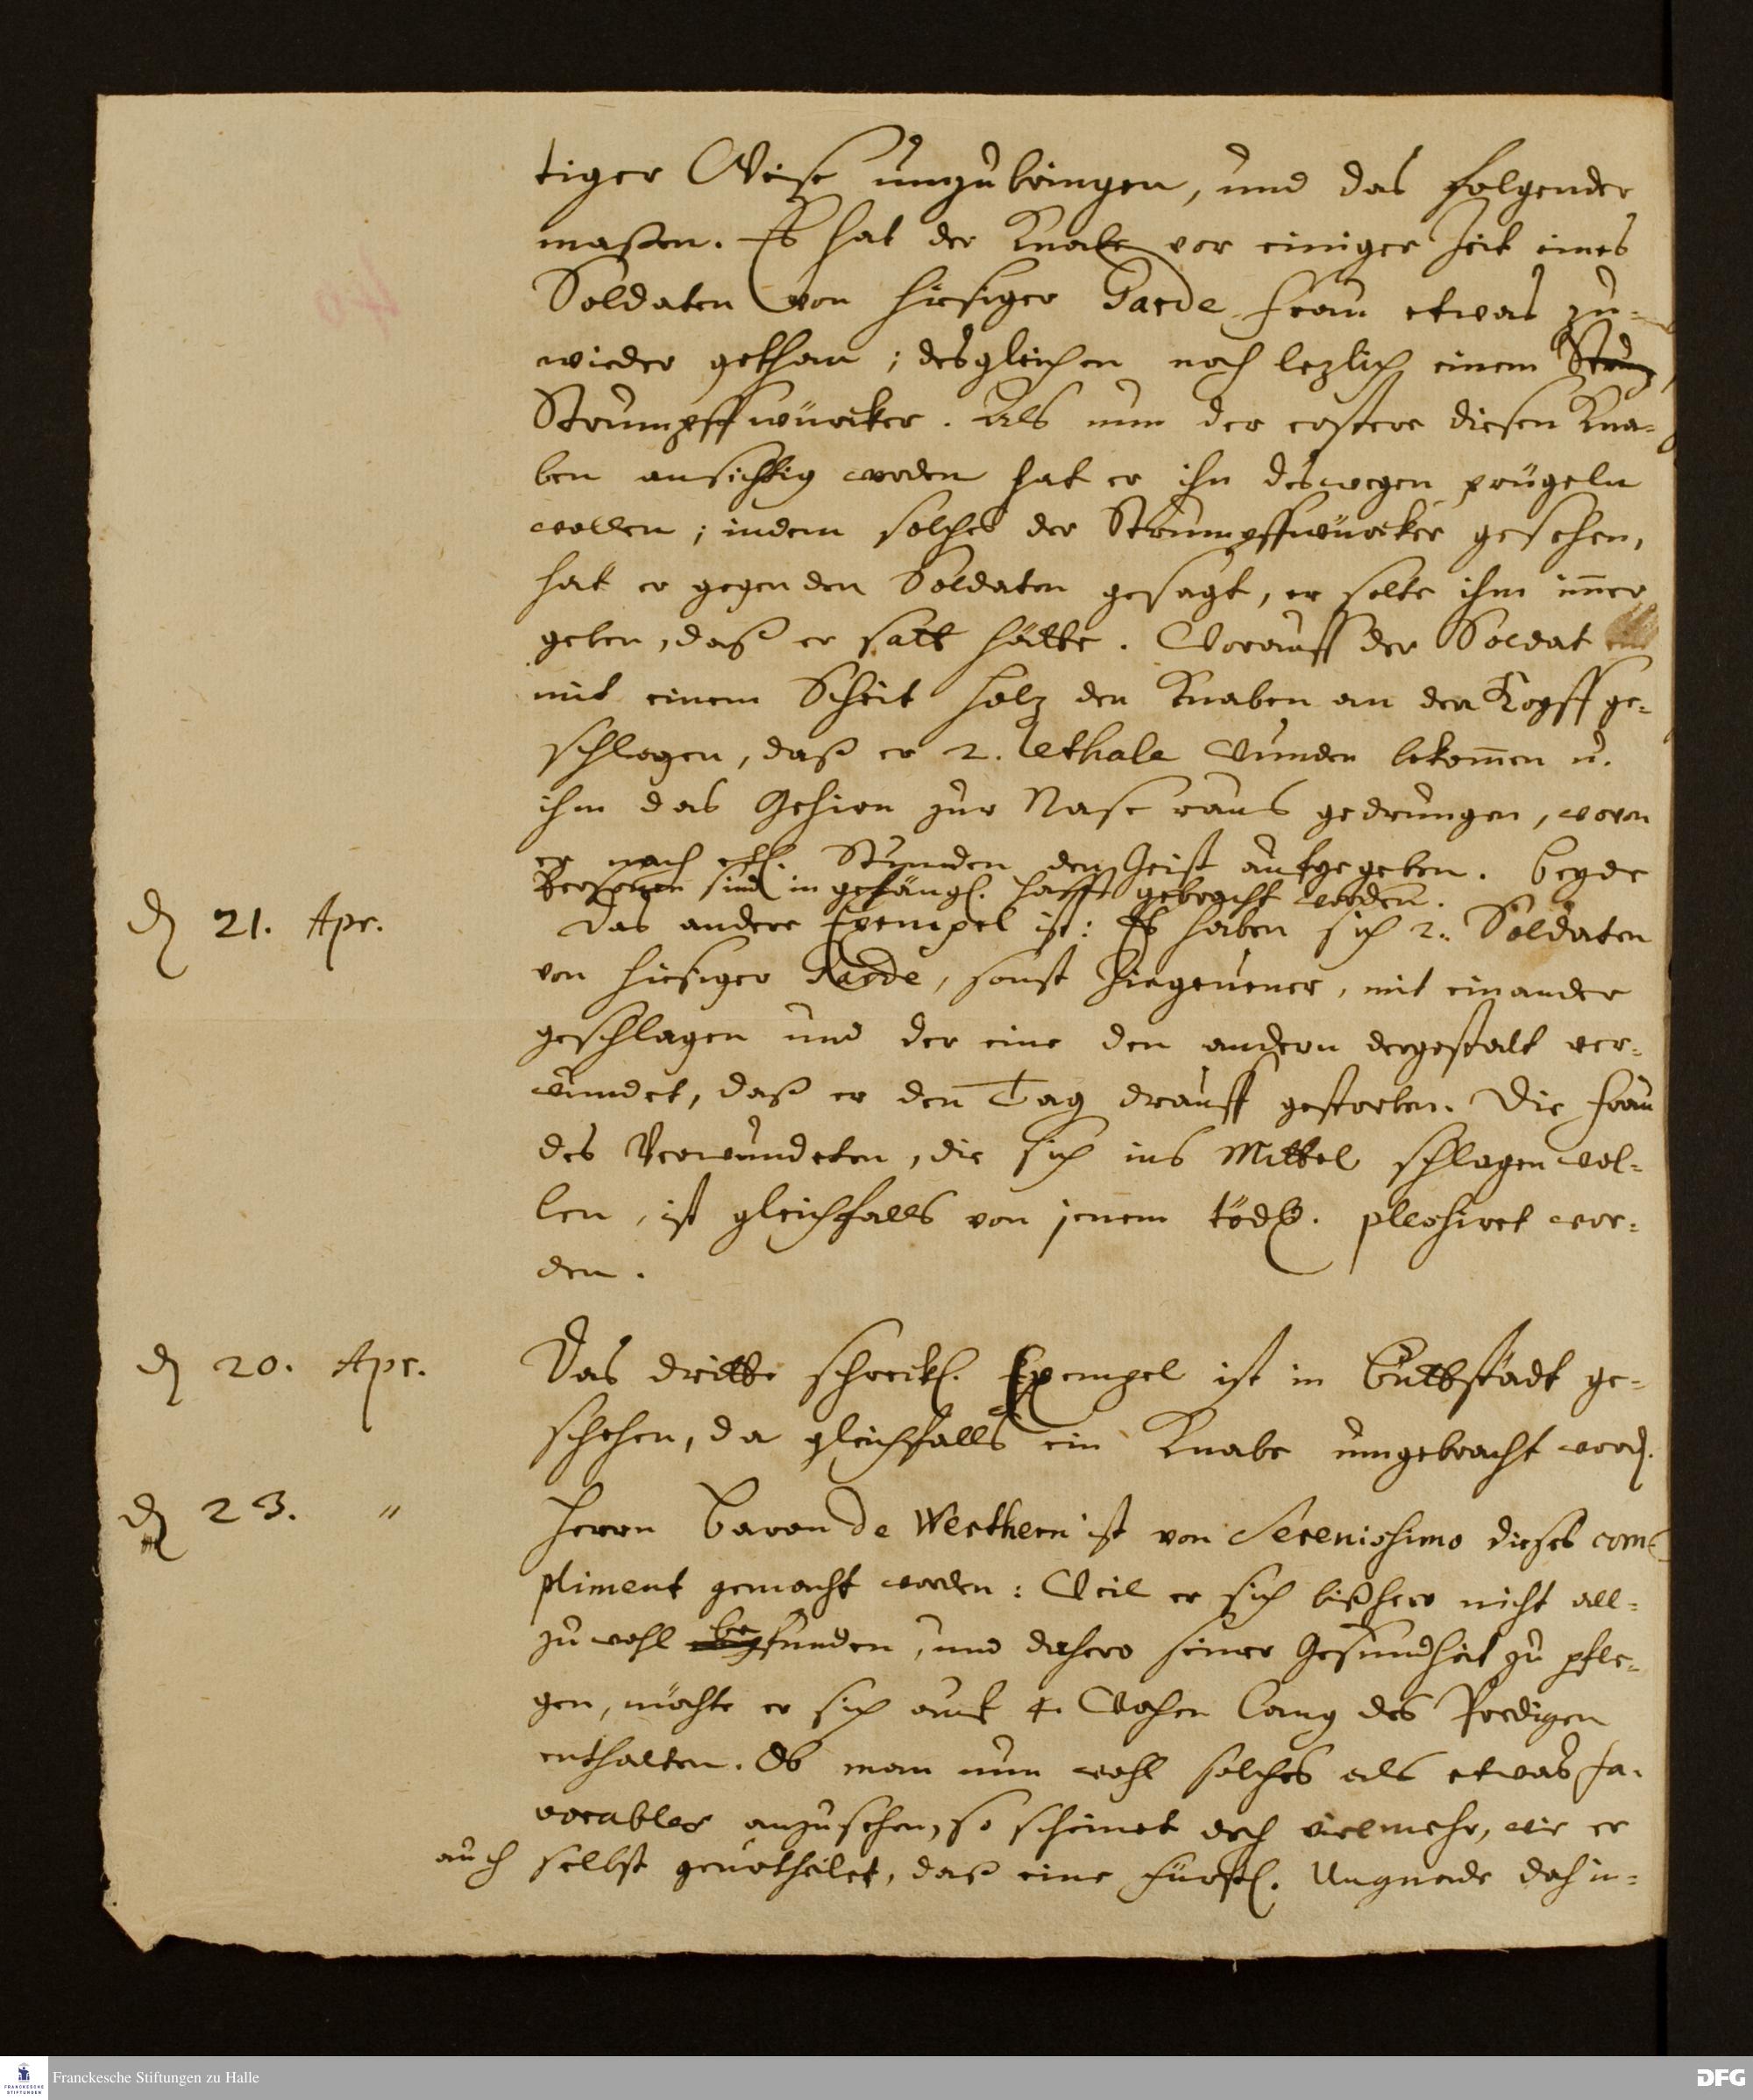 tiger Weise umzubringen, und das folgender
maßen. Es hat der Knabe vor einiger Zeit eines
Soldaten von hiesiger Garde Frau etwas zu-
wieder gethan; desgleichen noch lezlich einem Strum
Strumpffwürcker. Als nun der erstere diesen Kna-
ben ansichtig worden hat er ihn deswegen prügeln
wollen; indem solches der Strumpffwürcker gesehen,
hat er gegen den Soldaten gesagt, er solte ihm im̄er
geben, daß er satt hätte. Worauff der Soldat
mit einem Scheit Holz den Knaben an den Kopff ge-
schlagen, daß er 2. lethale Wunden bekom̄en u.
ihm das Gehirn zur Nase raus gedrungen, wovon
er nach etl. Stunden den Geist aufgegeben. Beyde
Personen sind in gefängl. Hafft gebracht worden.
d 21. Apr. Das andere Exempel ist: Es haben sich 2. Soldaten
von hiesiger Garde, sonst Ziegeuner, mit einander
geschlagen und der eine den andern dergestalt ver-
wundet, daß er den Tag drauff gestorben. Die Frau
des Verwundeten, die sich ins Mittel schlagen wol-
len, ist gleichfalls von jenem tödl. plessiret wor-
den.
d 20. Apr. Das dritte schreckl. Exempel ist in Buttstädt ge-
schehen, da gleichfalls ein Knabe umgebracht word.
d 23. " Herrn Baron de Werthern ist von Serenissimo dieses com-
pliment gemacht worden: Weil er sich bißhero nicht all-
zu wohl befunden, und dahero seiner Gesundheit zu pfle-
gen, möchte er sich auf 4. Wochen lang des Predigen
enthalten. Ob man nun wohl solches als etwas fa-
vorables anzusehen, so scheinet doch vielmehr, wie er
auch selbst geurtheilet, daß eine Fürstl. Ungnade dahin-
Franckesche Stiftungen zu Halle
DFG